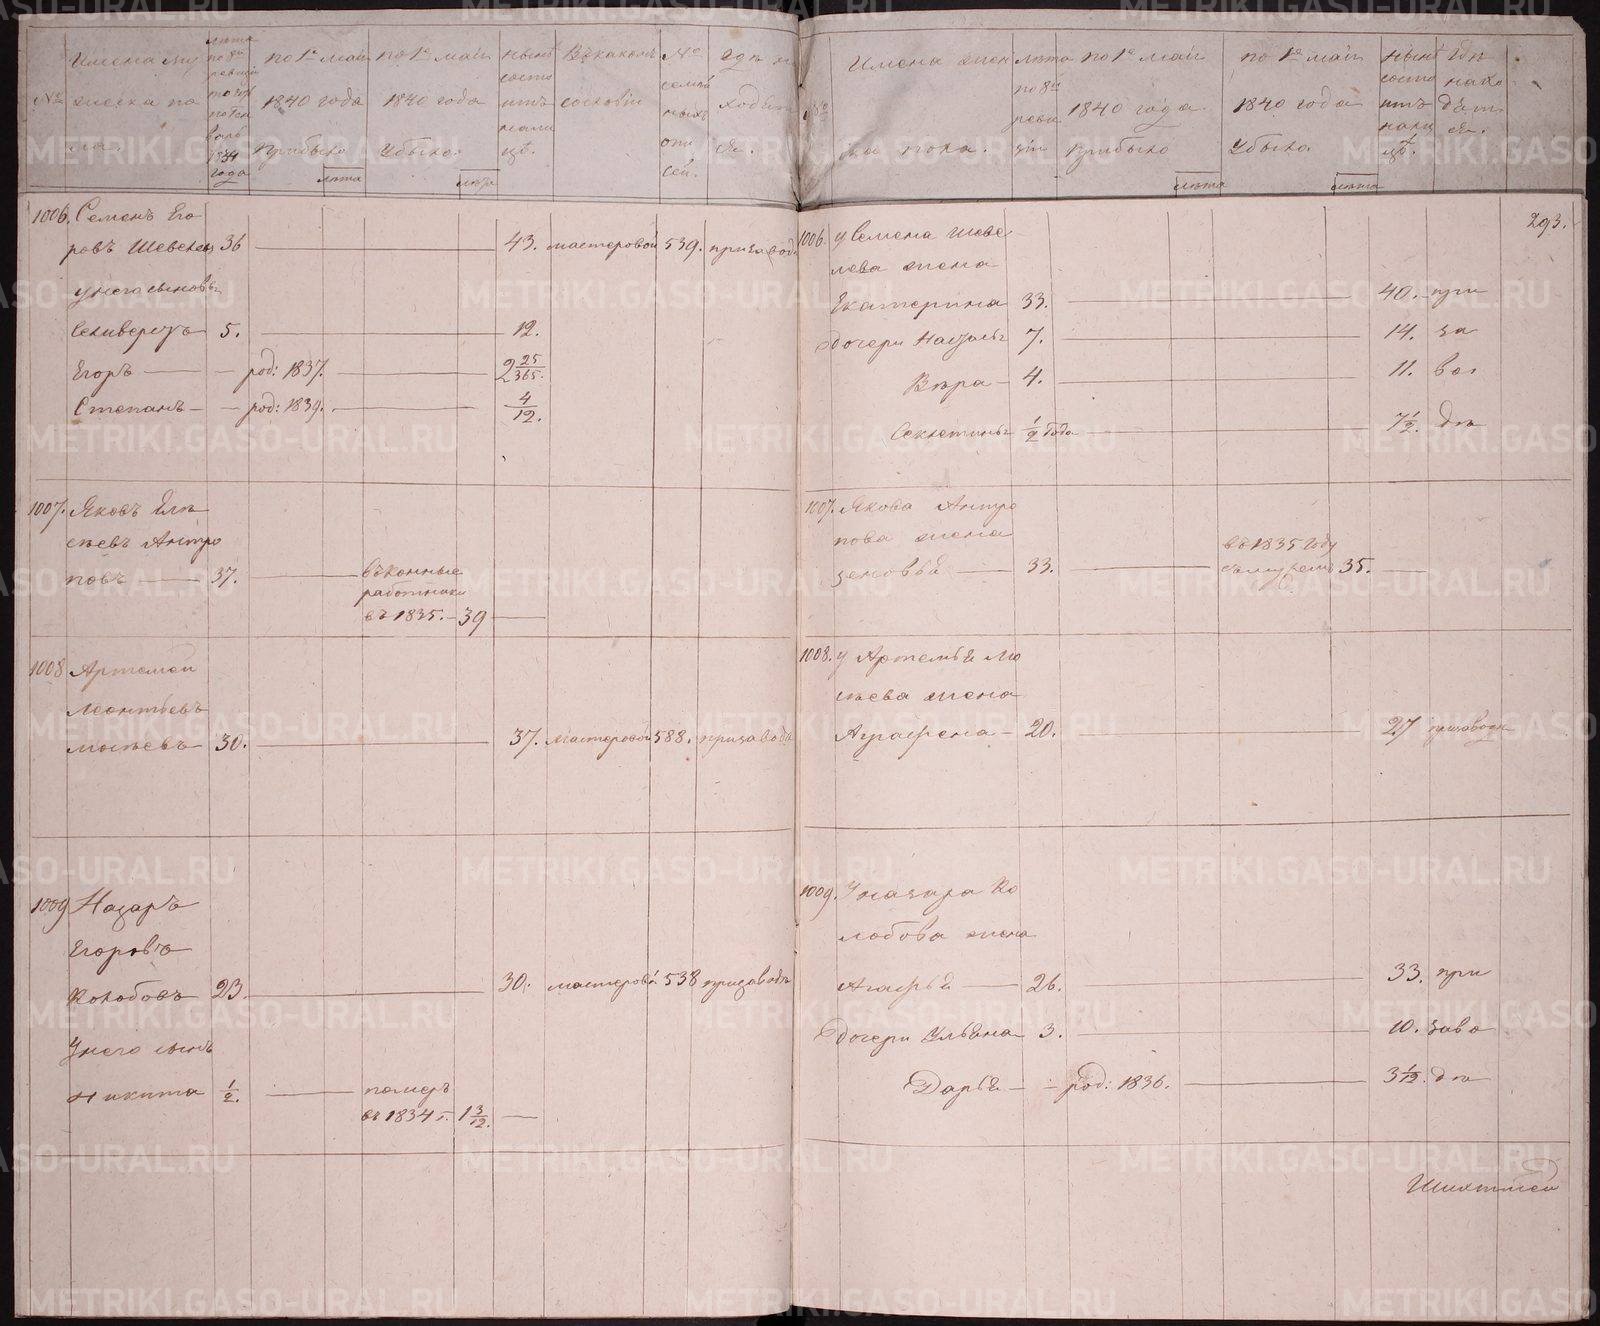 №
Имена муж
ческа по
ла.
лѣта
по 8й
ревизіи
1834
года
по 1е маія
1840 года
Прибыло
лѣта
по 1е маія
1840 года
Убыло.
лѣта
нынѣ
состо
итъ
нали
цѣ.
Въ какомъ
сословіи
№
семей
ныхъ
спи
сей.
гдѣ на
ходит
ся.
1006. Семенъ Его
ровъ Шевелевъ 36 43. мастеровой 539. при завод
у него сыновья
Селиверстъ 5. 12.
Егоръ род: 1837. 2 25/365.
Степанъ род: 1839. 4/12.
1007. Яковъ Ели
сѣевъ Антро
повъ 37. въ конные
работники
въ 1835. 39
1008 Артемей
Леонтьевъ
Мосѣевъ 30. 37. мастеровой 588. при заводѣ
1009 Назаръ
Егоровъ
Колобовъ 23. 30. мастеровой 538 при заводѣ
У него сынъ
Никита 1/2. померъ
въ 1834 г. 1 3/12.
№
Имена жен
ска пола.
лѣта
по 8й
реви
зіи
по 1е маія
1840 года.
Прибыло
лѣта
по 1е маія
1840 года
Убыло.
лѣта
нынѣ
состо
итъ
нали
цѣ.
Гдѣ
нахо
дит
ся.
293.
1006. у Семена Шеве
лева жена
Екатерина 33. 40. при
дочери Наталья 7. 14. за
Вѣра 4. 11. во
1/2 года 7 1/2. дѣ
1007. Якова Антро
пова жена
Зеновья 33. въ 1835 году
съ мужемъ 35.
1008. у Артемья Мо
сѣева жена
Аграфена 20. 27 при заводѣ
1009. У Назара Ко
лобова жена
Агафья 26. 33. при
дочери Ульяна 3. 10. заво
Дарья род: 1836. 3 1/12. дѣ
Шихтмей
METRIKI.GASO-URAL.RU